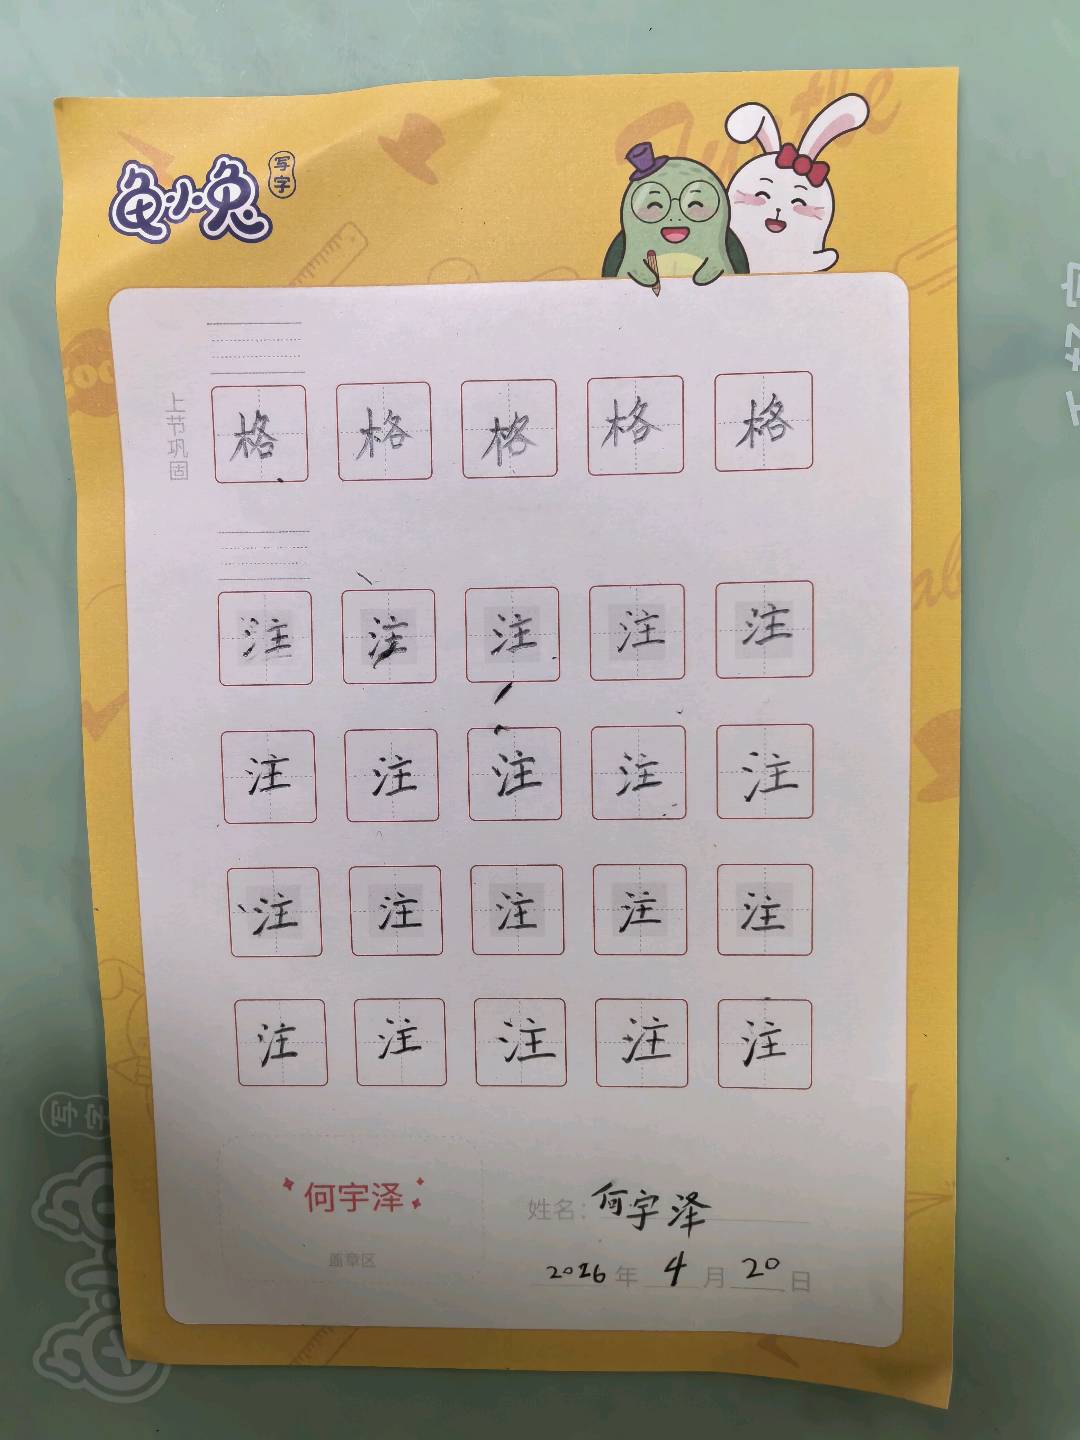 龟小兔 写字
上节巩固
格 格 格 格 格
注 注 注 注 注
注 注 注 注 注
注 注 注 注 注
注 注 注 注 注
何宇泽
盖章区
姓名: 何宇泽
2026 年 4 月 20 日